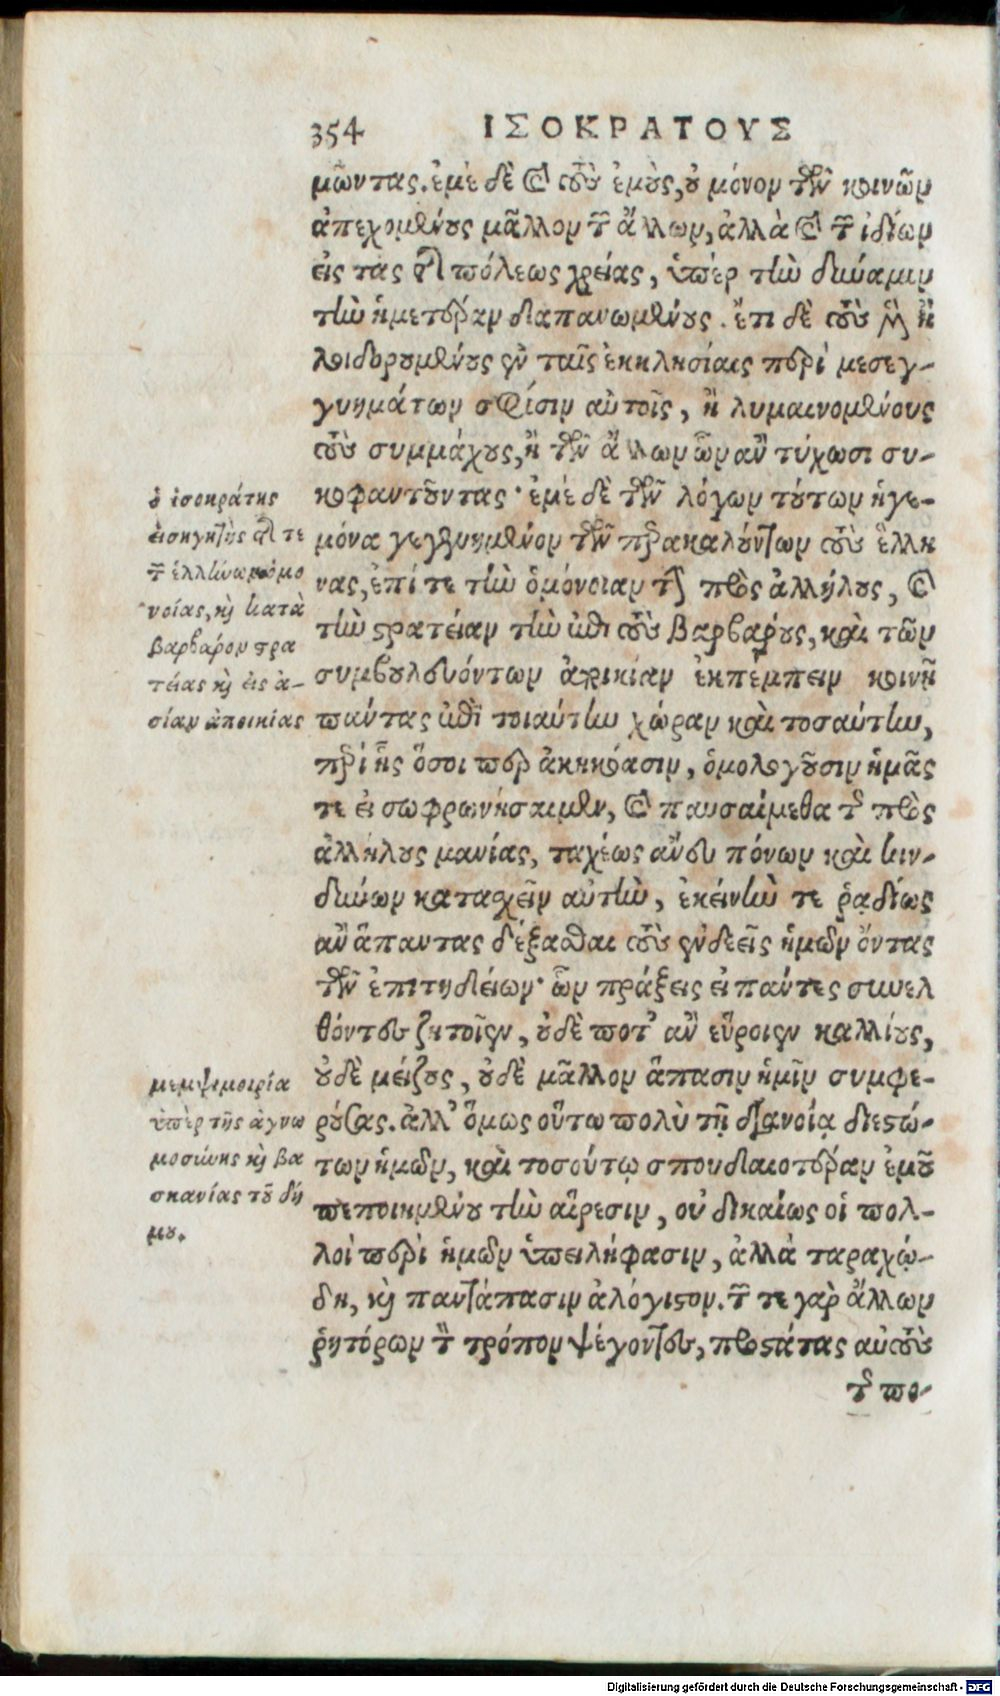 354 ΙΣΟΚΡΑΤΟΥΣ
μῶντας. ἐμὲ δὲ καὶ τοὺς ἐμοὺς, οὐ μόνον τῶν κοινῶν
ἀπεχομένους μᾶλλον τῶν ἄλλων, ἀλλὰ καὶ τῶν ἰδίων
εἰς τὰς τῆς πόλεως χρείας, ὑπὲρ τὴν δύναμιν
τὴν ἡμετέραν δαπανωμένους. ἔτι δὲ τοὺς μὲν ἢ
λοιδορουμένους ἐν ταῖς ἐκκλησίαις περὶ μεσεγ-
γυημάτων σφίσιν αὐτοῖς, ἢ λυμαινομένους
τοὺς συμμάχους, ἢ τῶν ἄλλων ὧν ἂν τύχωσι συ-
κοφαντοῦντας· ἐμὲ δὲ τῶν λόγων τούτων ἡγε-
μόνα γεγενημένον τῶν παρακαλούντων τοὺς ἕλλη
νας, ἐπί τε τὴν ὁμόνοιαν τὴν πρὸς ἀλλήλους, καὶ
τὴν στρατείαν τὴν ἐπὶ τοὺς βαρβάρους, καὶ τῶν
συμβουλευόντων ἀποικίαν ἐκπέμπειν κοινῇ
πάντας ἐπὶ τοιαύτην χώραν καὶ τοσαύτην,
περὶ ἧς ὅσοι περ ἀκηκόασιν, ὁμολογοῦσιν ἡμᾶς
τε εἰ σωφρονήσαιμεν, καὶ παυσαίμεθα τῆς πρὸς
ἀλλήλους μανίας, ταχέως ἄνευ πόνων καὶ κιν-
δύνων κατασχεῖν αὐτὴν, ἐκείνην τε ῥᾳδίως
ἂν ἅπαντας δέξασθαι τοὺς ἐνδεεῖς ἡμῶν ὄντας
τῶν ἐπιτηδείων· ὧν πράξεις εἰ πάντες συνελ
θόντες ζητοῖεν, οὐδέ ποτ' ἂν εὕροιεν καλλίους,
οὐδὲ μείζους, οὐδὲ μᾶλλον ἅπασιν ἡμῖν συμφε-
ρούσας. ἀλλ' ὅμως οὕτω πολὺ τῇ διανοίᾳ διεστώ-
των ἡμῶν, καὶ τοσούτῳ σπουδαιοτέραν ἐμοῦ
πεποιημένου τὴν αἵρεσιν, οὐ δικαίως οἱ πολ-
λοὶ περὶ ἡμῶν ὑπειλήφασιν, ἀλλὰ ταραχώ-
δη, καὶ παντάπασιν ἀλόγιστον. τῶν τε γὰρ ἄλλων
ῥητόρων τὸν τρόπον ψέγοντες, προστάτας αὐτοὺς
τῆς πο-
ὁ ἰσοκράτης
εἰσηγητὴς τῆς τε
τῶν ἑλλήνων ὁμο
νοίας, καὶ κατὰ
βαρβάρων στρα
τείας καὶ εἰς ἀ-
σίαν ἀποικίας
μεμψιμοιρία
ὑπὲρ τῆς ἀγνω
μοσύνης καὶ βα
σκανίας τοῦ δή
μου.
Digitalisierung gefördert durch die Deutsche Forschungsgemeinschaft - DFG